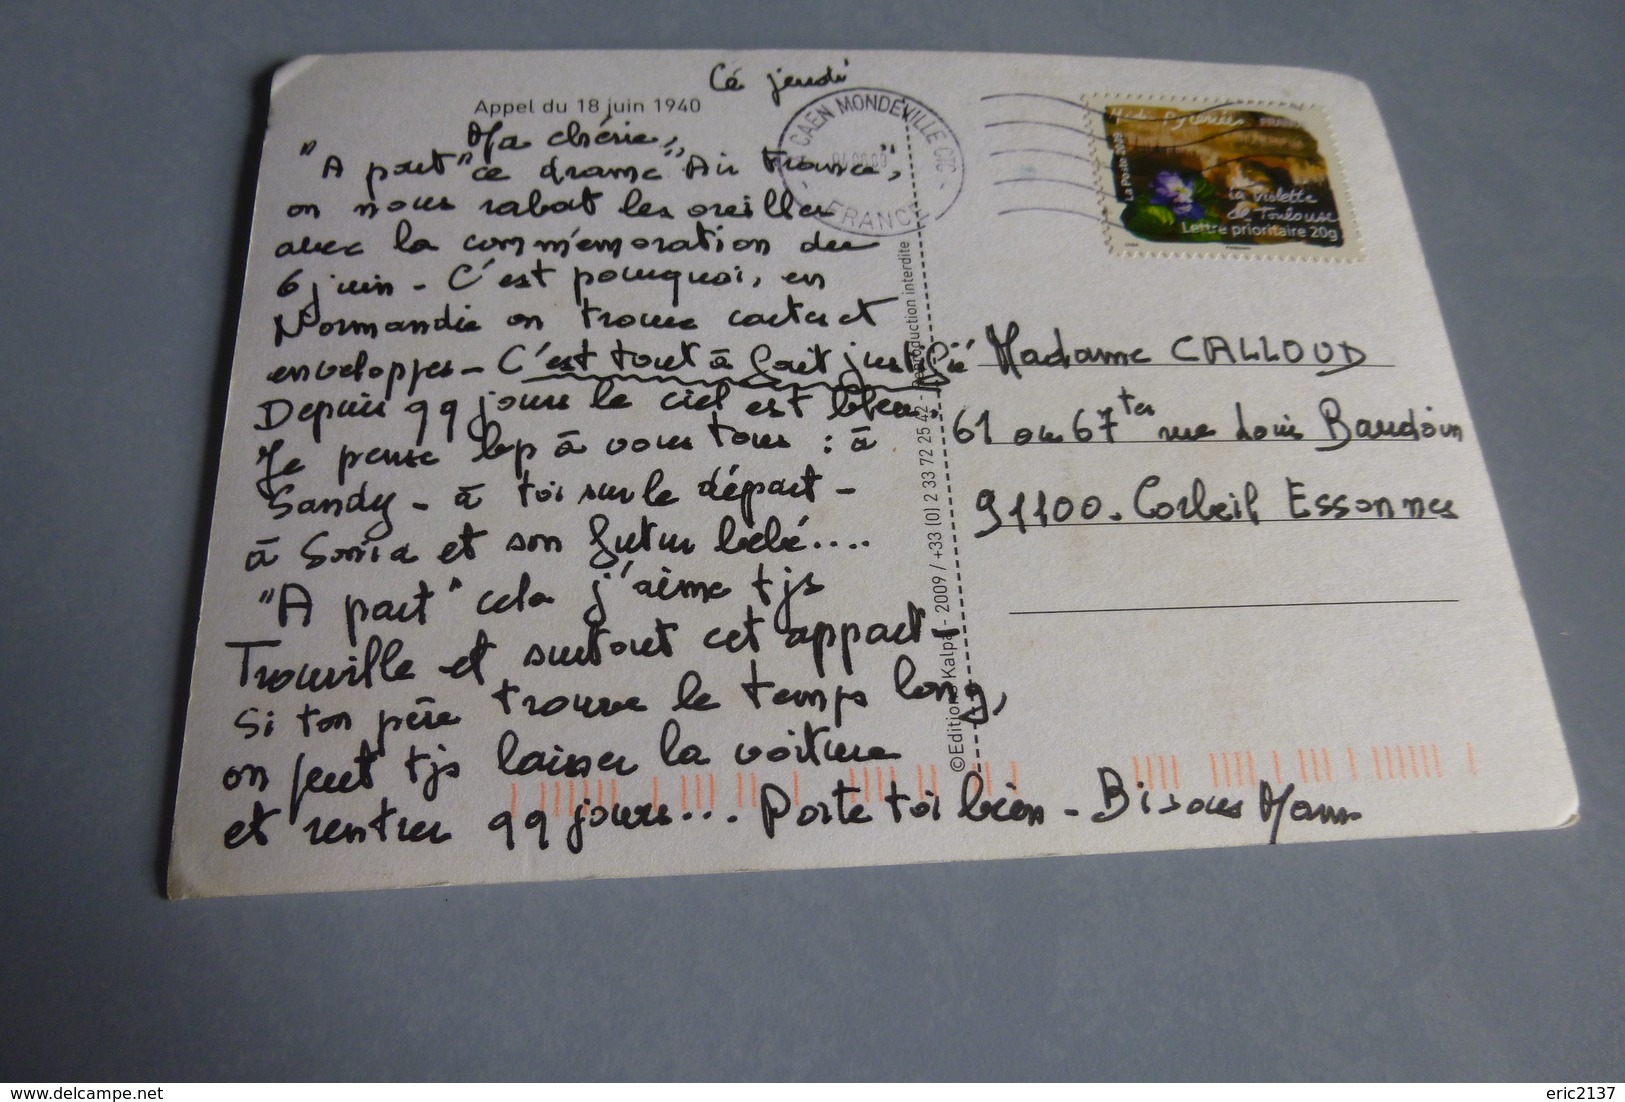 Cé jeudi
Appel du 18 juin 1940
Ma chérie,
"A part" ce drame "Air France",
on nous rabat les oreilles
avec la commémoration du
6 juin - C'est pourquoi, en
Normandie on trouve cartes et
enveloppes - C'est tout à fait justifié
Depuis qq jours le ciel est bleu.
Je pense bcp à vous tous : à
Sandy - à toi sur le départ -
à Sonia et son futur bébé....
"A part" cela j'aime tjs
Trouville et surtout cet appart -
Si ton père trouve le temps long,
on peut tjs laisser la voiture
et rentrer qq jours... Porte toi bien - Bisous Mam
CAEN MONDEVILLE CTC
FRANCE
©Editions Kalpa - 2009 / +33 (0) 2 33 72 25 42 - Reproduction interdite
Midi Pyrénées FRANCE
La Poste 2009
La Violette
de Toulouse
Lettre prioritaire 20g
Madame CALLOUD
61 ou 67 ter rue Louis Baudoin
91100. Corbeil Essonnes
www.delcampe.net
eric2137